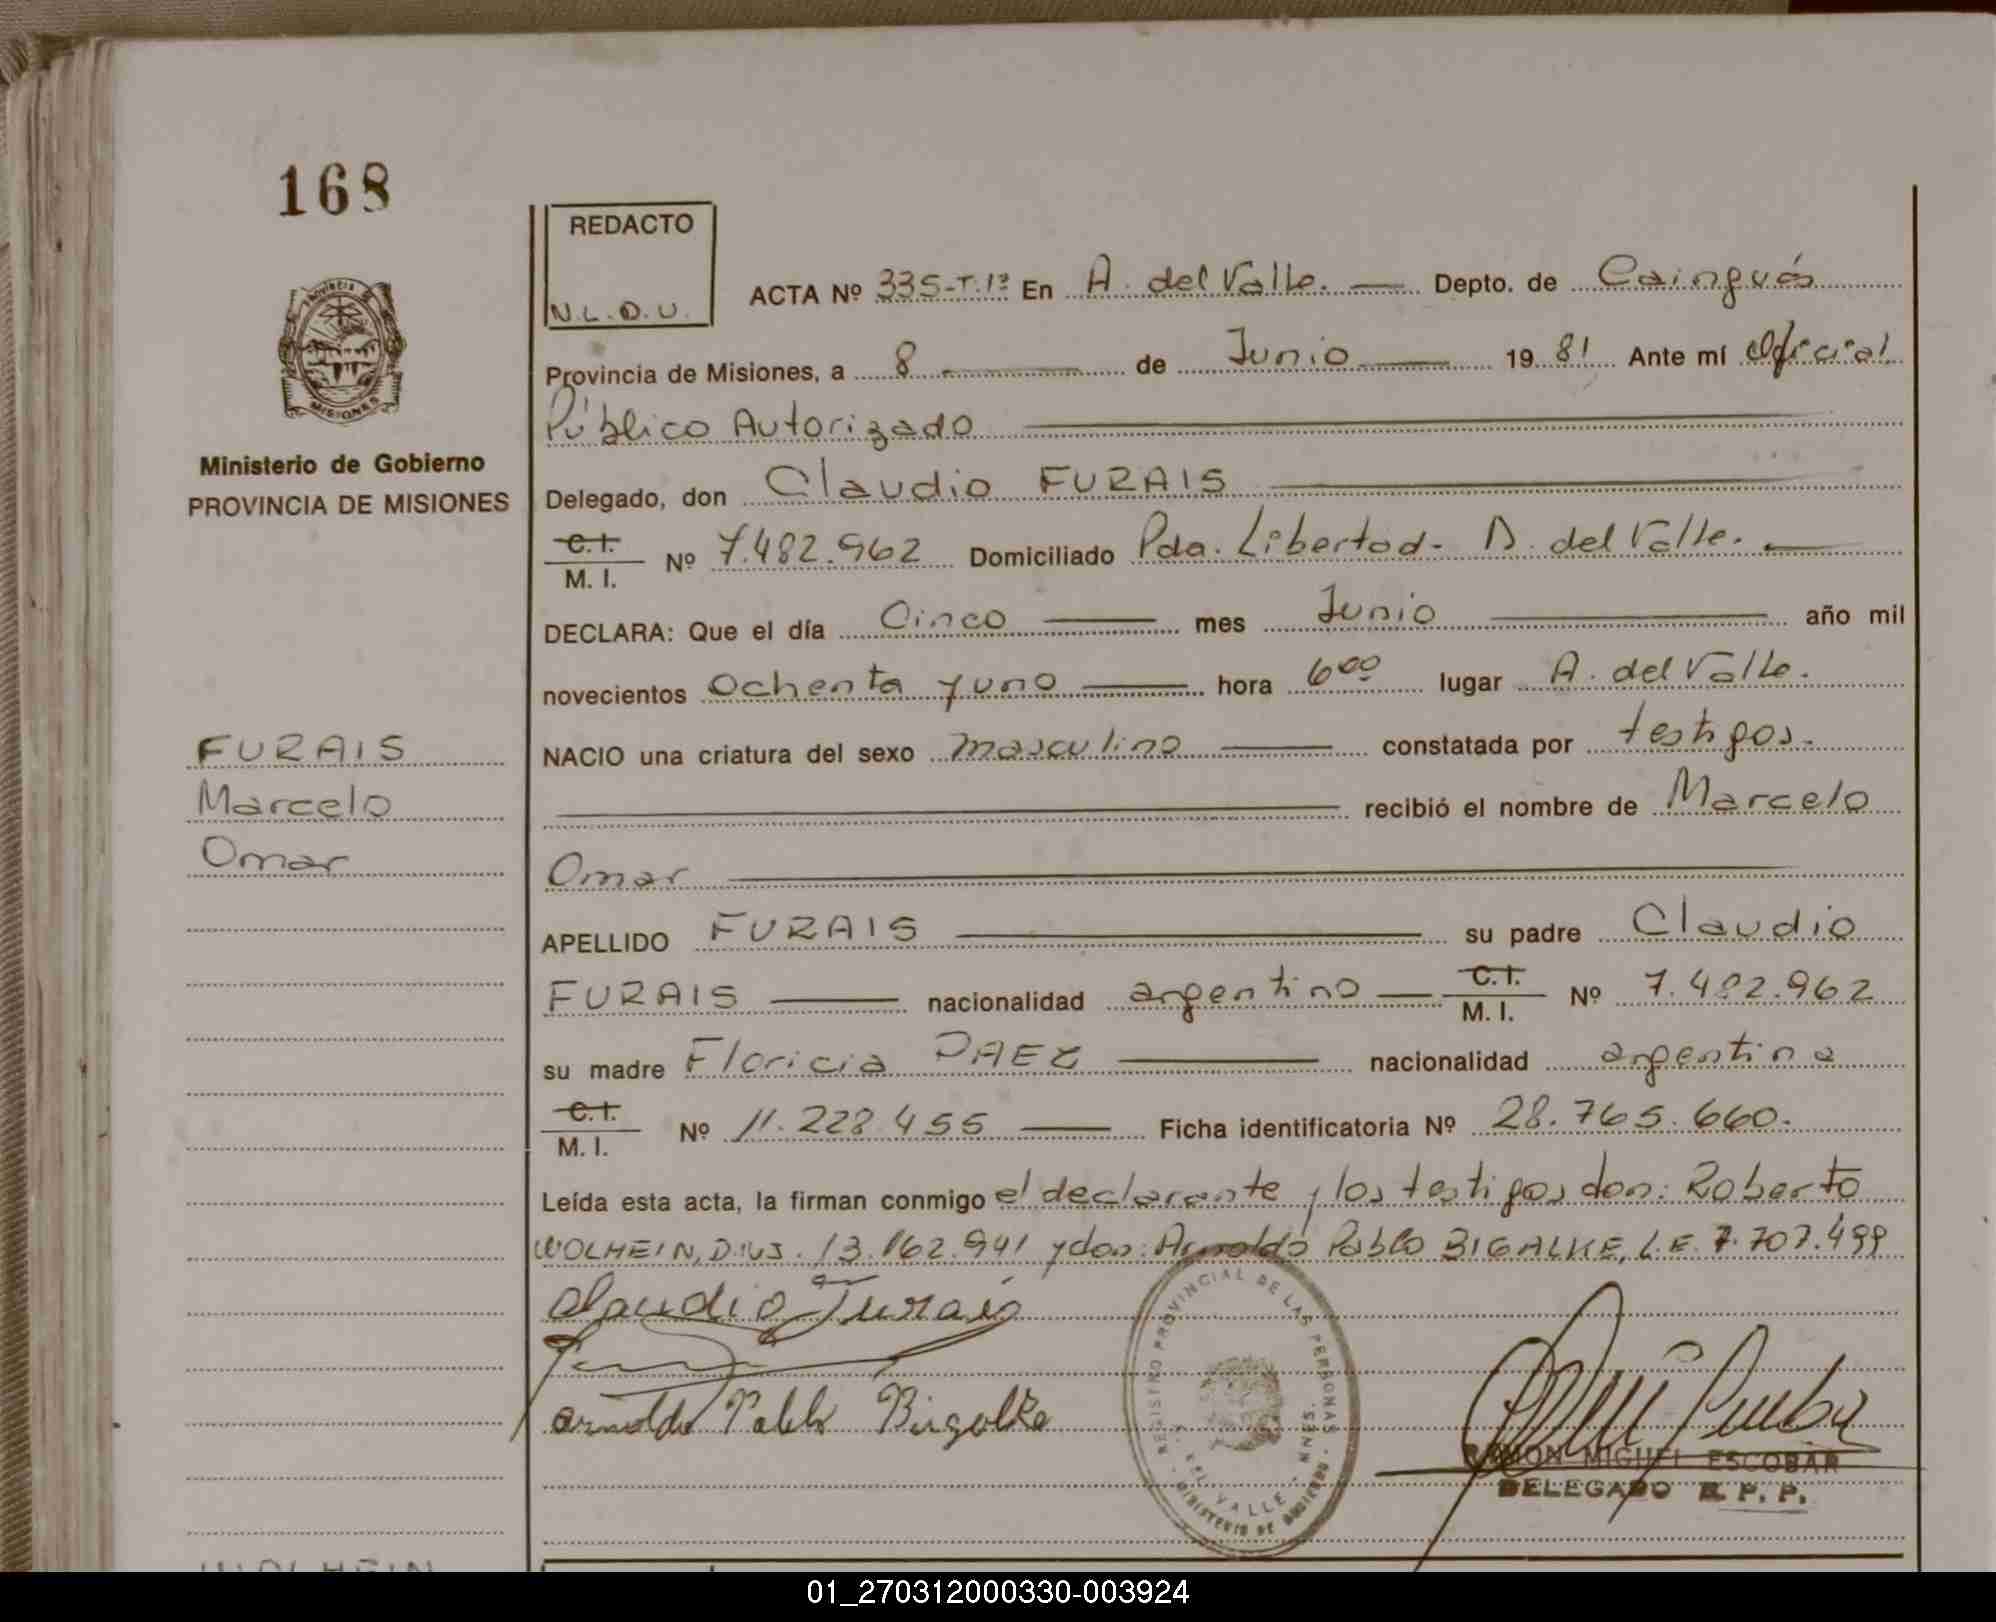 168
REDACTO
N.L.D.U.
ACTA Nº 335-T.1º En A. del Valle. Depto. de Cainguás
Provincia de Misiones, a 8 de Junio 1981 Ante mí Oficial
Público Autorizado
Ministerio de Gobierno
PROVINCIA DE MISIONES
Delegado, don Claudio FURAIS
C.I. M.I. Nº 7.482.962 Domiciliado Pda. Libertad- A. del Valle.
DECLARA: Que el día Cinco mes Junio año mil
novecientos ochenta y uno hora 6 00 lugar A. del Valle.
FURAIS
Marcelo
Omar
NACIO una criatura del sexo masculino constatada por testigos.
recibió el nombre de Marcelo
Omar
APELLIDO FURAIS su padre Claudio
FURAIS nacionalidad argentino C.I. M.I. Nº 7.482.962
su madre Floricia PAEZ nacionalidad argentina
C.I. M.I. Nº 11.228.455 Ficha identificatoria Nº 28.765.660.
Leída esta acta, la firman conmigo el declarante y los testigos don: Roberto
WOLHEIN, 13.162.941 y don: Arnoldo Pablo BIGALKE, L.E. 7.707.499
Claudio Furais
Arnoldo Pablo Bigalke
REGISTRO PROVINCIAL DE LAS PERSONAS
DEL VALLE - MNES.
MINISTERIO DE GOBIERNO
RAMON MIGUEL ESCOBAR
DELEGADO R. P. P.
WOLHEIN
01_270312000330-003924